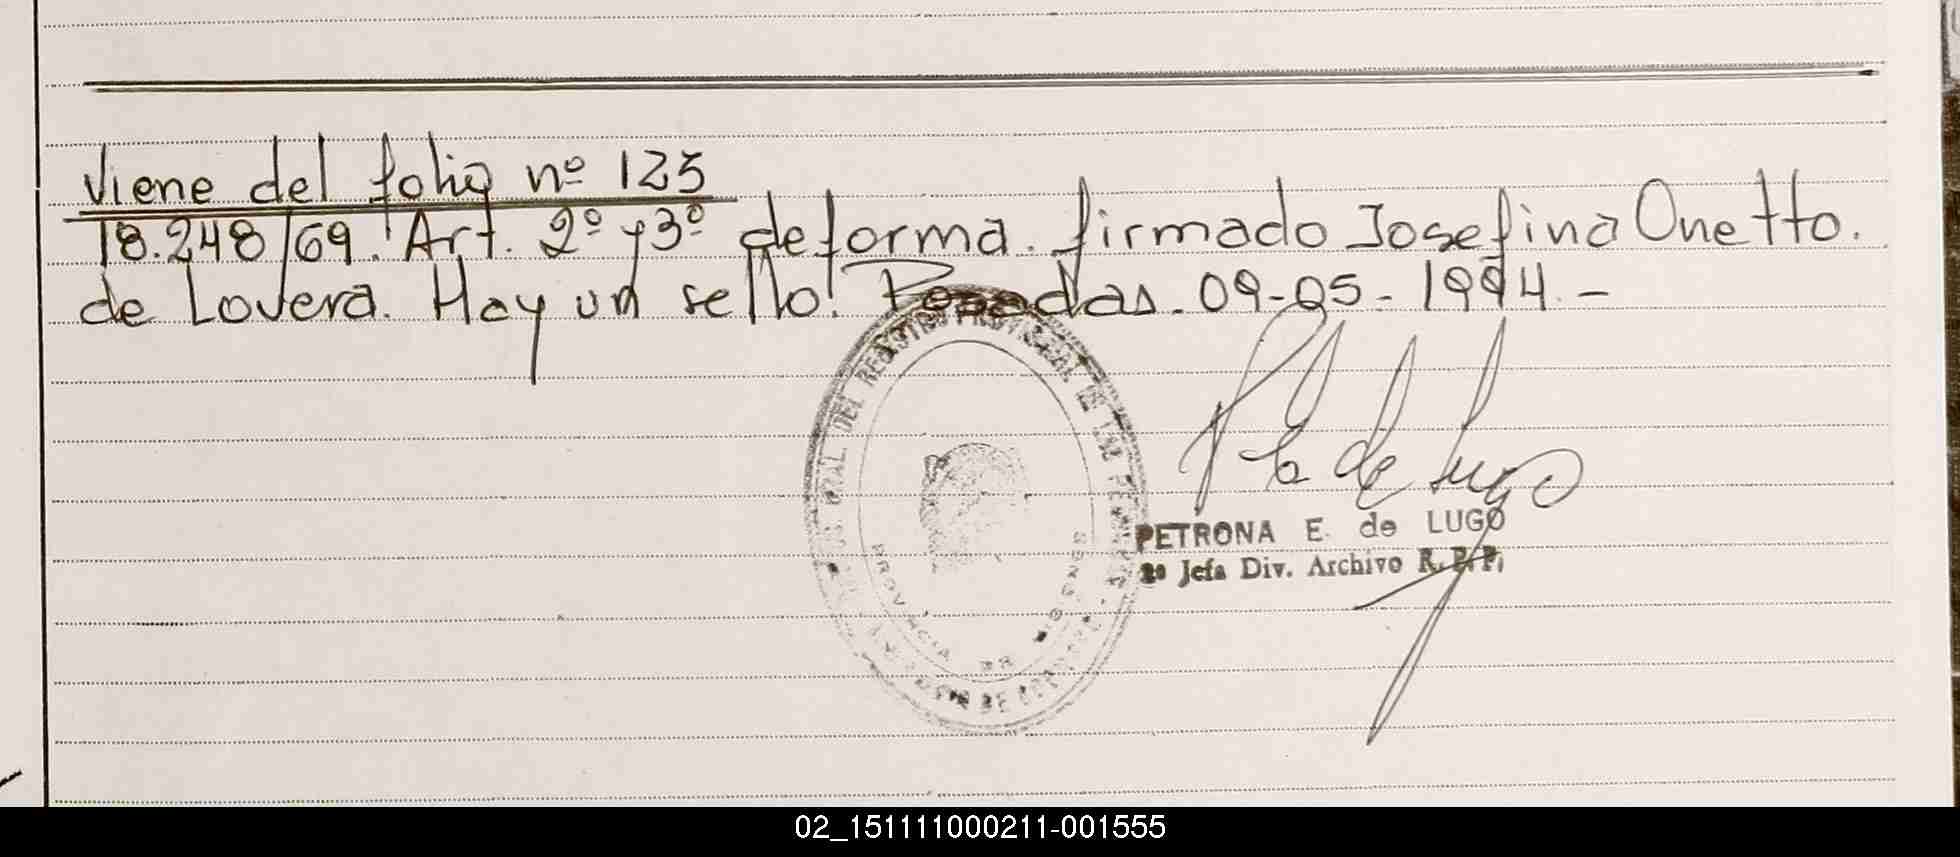 Viene del folio nº 125
18.248/69. Art. 2º y 3º de forma. firmado Josefina Onetto.
de Lovera. Hay un sello. Posadas. 09-05-1994.-
DEL REGISTRO PROVINCIAL DE LAS PE
PROVINCIA DE
MISIONES
Pta de Lugo
PETRONA E. de LUGO
2º Jefa Div. Archivo R. P. P.
02_151111000211-001555